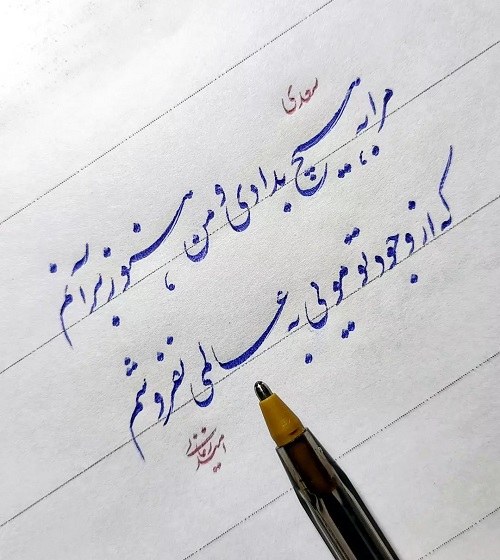 سعدی
مرا به هیچ بدادی و من هنوز برآنم
که از وجود تو مویی به عالمی نفروشم